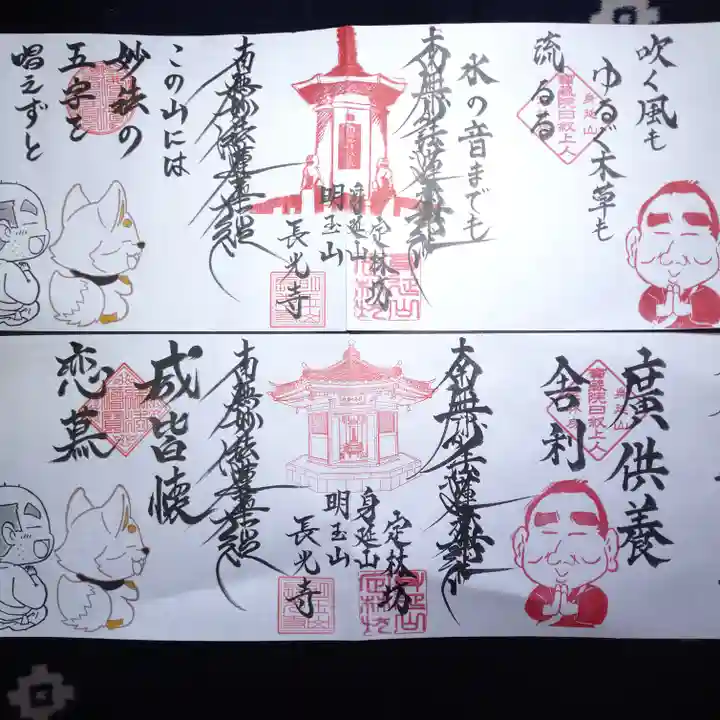 吹く風も
ゆるぐ木草も
流るる
身延山
日叙上人
水の音までも
南無妙法蓮華経
定林坊
身延山
明玉山
長光寺
南無妙法蓮華経
この山には
妙法の
五字を
唱えずと
廣供養
舎利
身延山
日叙上人
南無妙法蓮華経
定林坊
身延山
明玉山
長光寺
南無妙法蓮華経
咸皆懐
恋慕